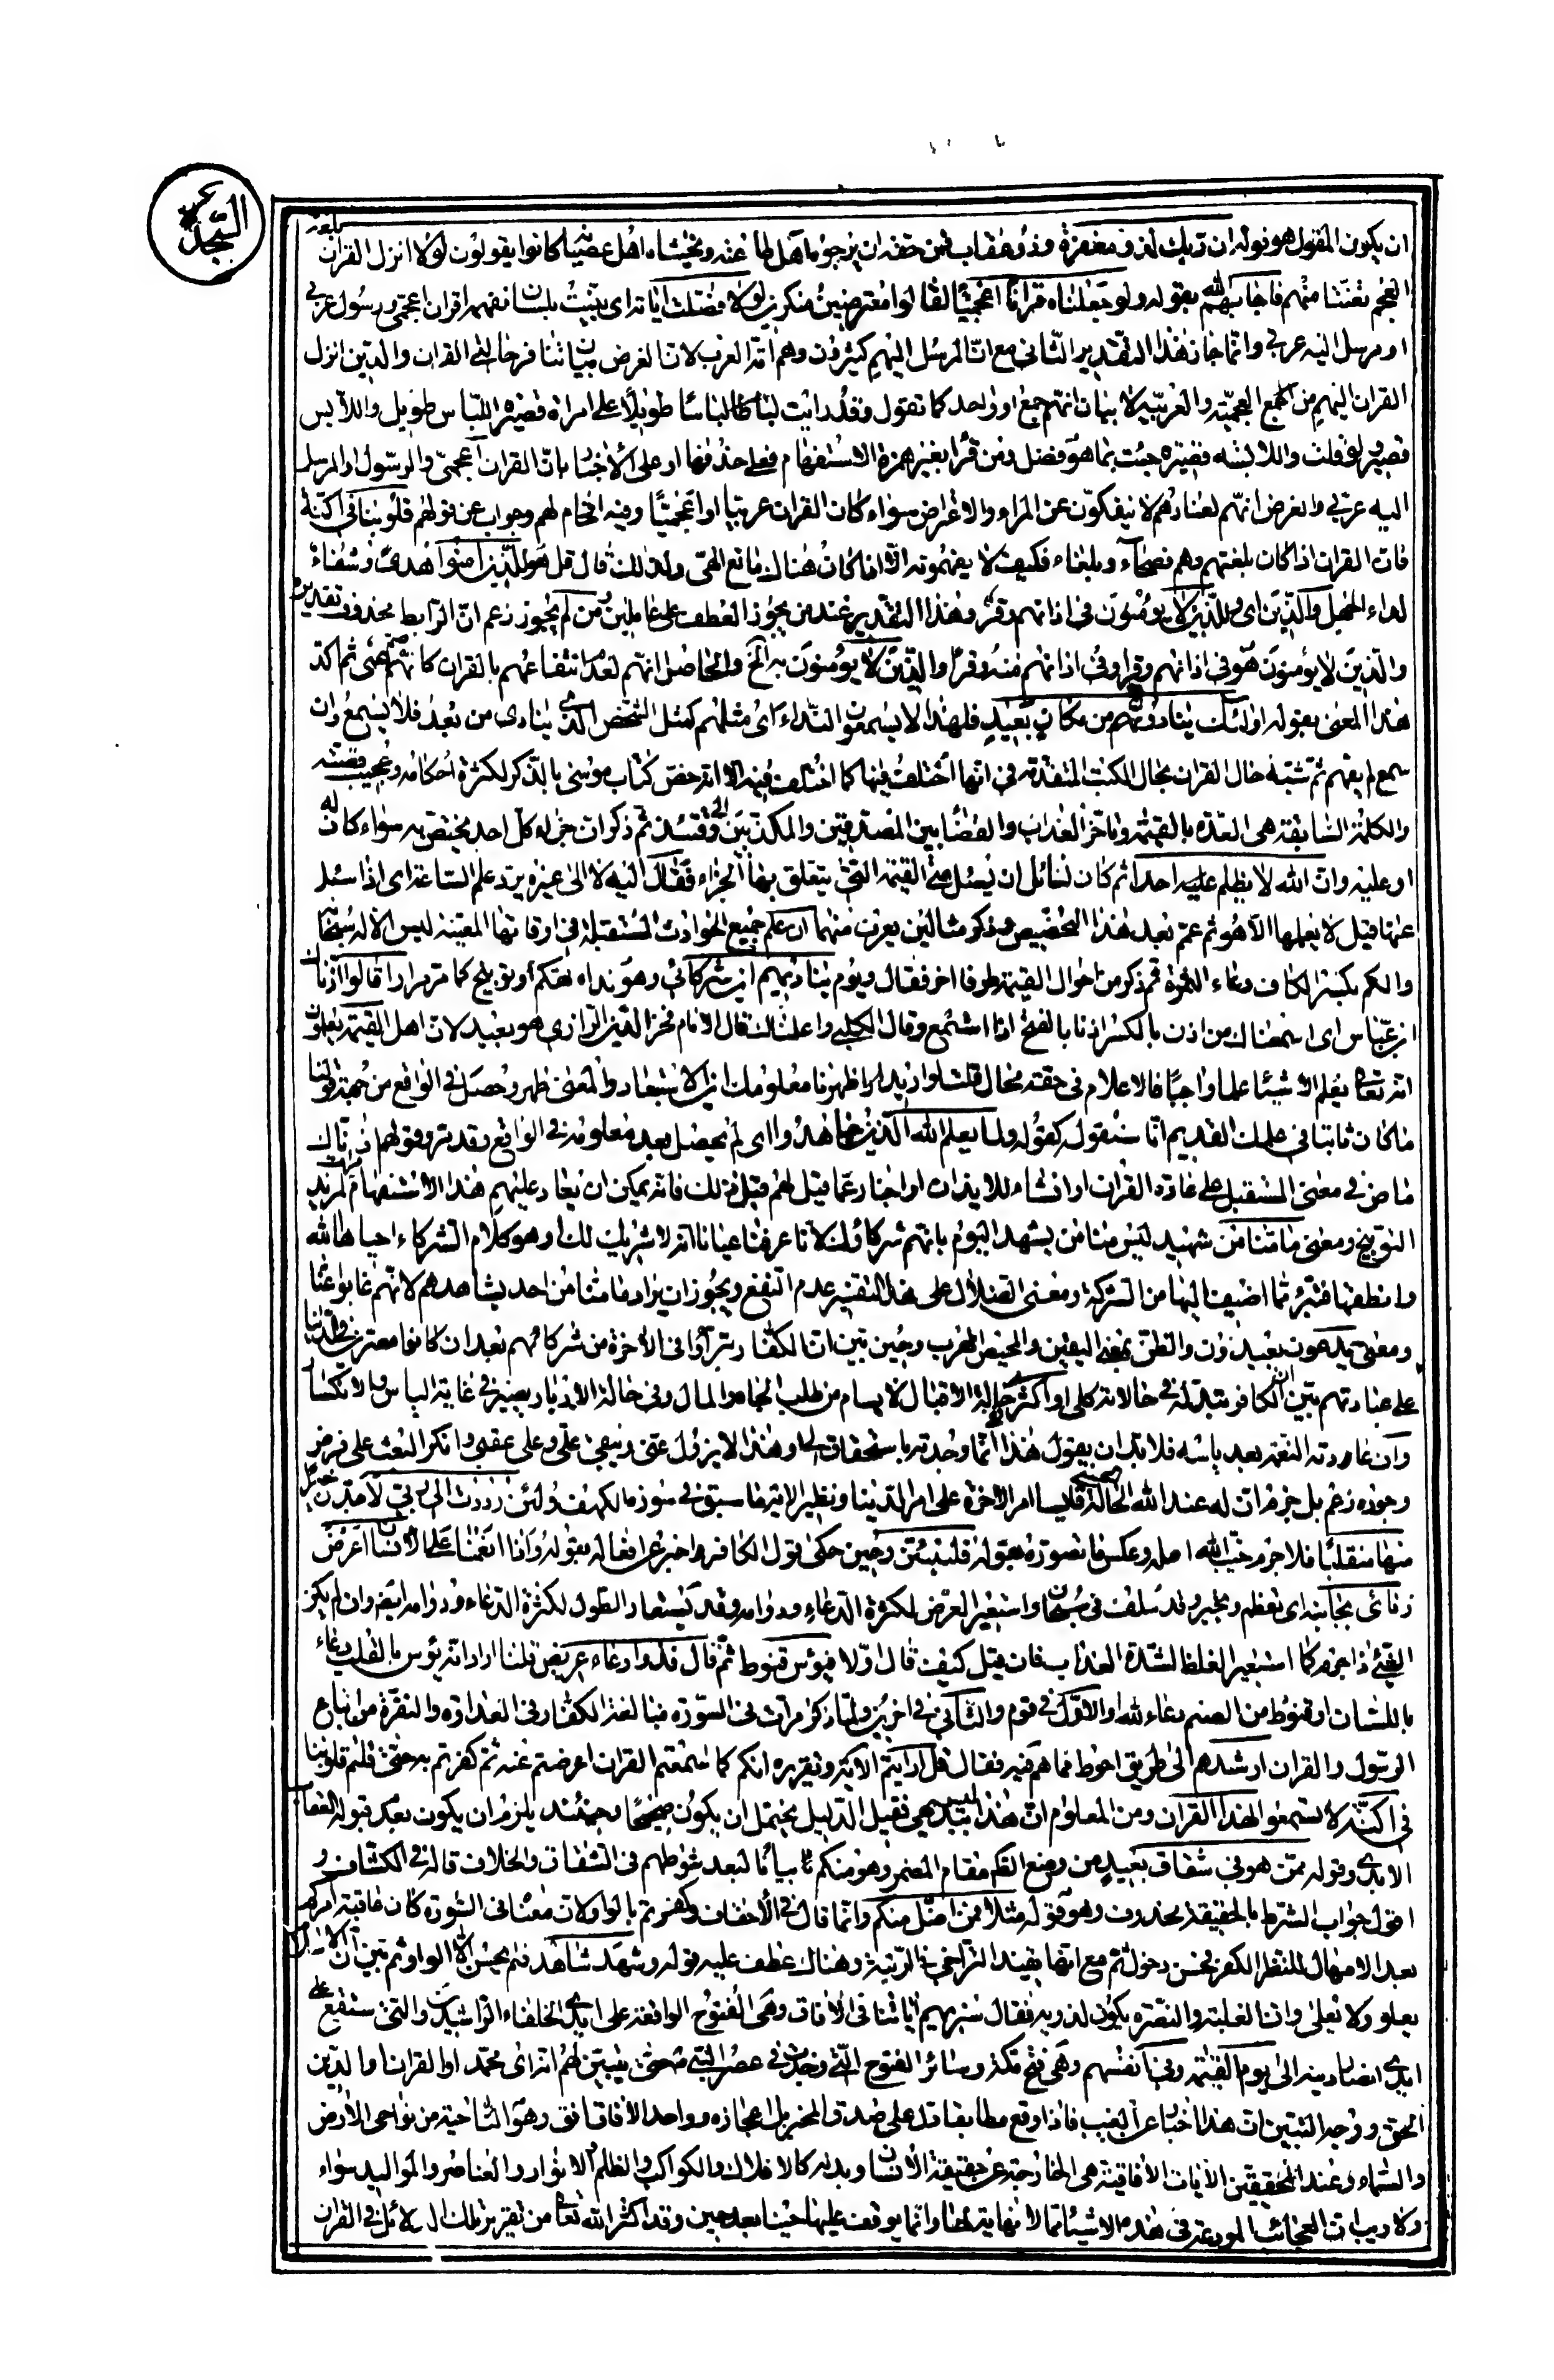 حم السجدة
ان يكون المقول هو قوله ان ربك لذو مغفرة وذو عقاب فمن حقه ان يرجوه اهل طاعته ويخشاه اهل عصيانه كانوا يقولون لولا انزل القران بلغة
العجم تعنتا منهم فاجابهم الله بقوله ولو جعلناه قرانا اعجميا لقالوا معترضين منكرين لولا فصلت اياته اى بينت بلسان نفهمه اقران اعجمى ورسول عربى
او مرسل اليه عربى وانما جاز هذا التقدير الثانى مع ان المرسل اليهم كثيرون وهم امة العرب لان الغرض بيان تنافر حالتى القران والذين انزل
القران اليهم من العجمية والعربية لا بيان انهم جمع او واحد كما تقول وقد رايت لباسا طويلا على امراة قصيرة اللباس طويل واللابس
قصير ولو قلت واللابسة قصيرة جئت بما هو فضل ومن قرا بغير همزة الاستفهام فعلى حذفها او على الاخبار بان القران اعجمى والرسول او المرسل
اليه عربى والغرض انهم لعنادهم لا ينفكون عن المراء والاعتراض سواء كان القران عربيا او اعجميا وفيه افحام لهم وجواب عن قولهم قلوبنا فى اكنة
فان القران اذا كان بلغتهم وهم فصحاء وبلغاء فكيف لا يفهمونه الا اذا كان هناك مانع الهى ولذلك قال قل هو للذين امنوا هدى وشفاء
لداء الجهل والذين اى وللذين لا يؤمنون فى اذانهم وقر وهذا التقدير عند من يجوز العطف على عاملين ومن لم يجوز زعم ان الرابط محذوف تقديره
والذين لا يؤمنون هو فى اذانهم وقر او فى اذانهم منه وقر او الذين لا يؤمنون به الخ والحاصل انهم لعدم انتفاعهم بالقران كانهم صم عمى ثم اكد
هذا المعنى بقوله اولئك ينادون من مكان بعيد فلهذا لا يسمعون النداء اى مثلهم كمثل الشخص الذى ينادى من بعد فلا يسمع وان
سمع لم يفهم ثم شبه حال القران بحال الكتب المتقدمة فى انها اختلف فيها كما اختلف فيه الا انه خص كتاب موسى بالذكر لكثرة احكامه وعجيب قصته
والكلمة السابقة هى العدة بالقيمة وتاخر العذاب والقضاء بين المصدقين والمكذبين الى وقتئذ ثم ذكر ان جزاء كل احد يختص به سواء كان له
او عليه وان الله لا يظلم عليه احدا ثم كان لسائل ان يسئل متى القيمة التى يتعلق بها الجزاء فقال اليه لا الى غيره يرد علم الساعة اى اذا سئل
عنها قيل لا يعلمها الا هو ثم عمم بعد هذا التخصيص وذكر مثالين يعرف منهما ان علم جميع الحوادث المستقبلة فى اوقاتها المعينة ليس الا له سبحانه
والكم بكسر الكاف وعاء الثمرة ثم ذكر من احوال القيمة طرفا اخر فقال ويوم يناديهم اين شركائى وهو نداء تهكم او توبيخ كما مر مرارا قالوا اذناك
ابن عباس اى اسمعناك من اذن بالكسر اذنا بالفتح اذا استمع وقال الكلبى واعلمناك قال الامام فخر الدين الرازى هو بعيد لان اهل القيمة يعلمون
انه تعالى يعلم الاشياء علما واجبا فالاعلام فى حقه محال قلت واريد اظهرنا معلومك اين الاستبعاد والمعنى ظهر وحصل فى الواقع من جهة قولنا
ما كان ثابتا فى علمك القديم انا سنقول كقوله ولما يعلم الله الذين جاهدوا اى لم يحصل بعد معلومه فى الواقع وقد مر وقولهم اذناك
ماض فى معنى المستقبل على عادة القران او انشاء للايذان او اخبار عما قيل لهم قبل ذلك فانه يمكن ان يعاد عليهم هذا الاستفهام مرات لمزيد
التوبيخ ومعنى ما منا من شهيد ليس منا من يشهد اليوم بانهم شركاؤك لانا عرفنا عيانا انه لا شريك لك او هو كلام الشركاء احياها الله
وانطقها فتبرء مما اضيف اليها من الشركة ومعنى الضلال على هذا التفسير عدم النفع ويجوز ان يراد ما منا من احد يشاهدهم لانهم غابوا عنا
ومعنى يدعون يعبدون والظن بمعنى اليقين والمحيص المهرب وحين بين ان الكفار تبرءوا فى الاخرة من شركائهم بعد ان كانوا مصرين فى الدنيا
على عبادتهم بين ان الكافر متبدلة فى حالاته كلى او اكثرى حالة الاقبال لا يسام من طلب الجاه والمال وفى حالة الادبار يصير فى غاية الياس والانكسار
وان عاودته النعمة بعد ياسه فلا بد ان يقول هذا لى انما وجدته باستحقاق لى وهذا لا يزول عنى ويبقى على وعلى عقبى وانكر البعث على فرض
وجوده زعم بل جزم ان له عند الله الحالة الحسنى قايسا امر الاخرة على امر الدنيا ونظير الاية ما سبق فى سورة الكهف ولئن رددت الى ربى لاجدن خيرا
منها منقلبا فلا جرم خيب الله امله وعكس ما تصوره بقوله فلننبئن وحين حكى قول الكافر اخبر عن افعاله بقوله واذا انعمنا على الانسان اعرض
وناى بجانبه اى تعظم وتجبر وقد سلف فى سبحان واستعير العرض لكثرة الدعاء ودوامه وقد يستعار الطول لكثرة الدعاء ودوامه ايضا وان لم يكن
الشئ ذا جرم كما استعير الغلظ لشدة العذاب فان قيل كيف قال اولا فيؤس قنوط ثم قال فذو دعاء عريض قلنا اراد انه يؤس بالقلب دعاء
باللسان او قنوط من الصنم دعاء لله او الاول فى قوم والثانى فى اخرين ولما ذكر مرات فى السورة مبالغة الكفار فى العداوة والنفرة من اتباع
الرسول والقران ارشدهم الى طريق احوط مما هم فيه فقال قل ارايتم الاية وتقريره انكم كما سمعتم القران اعرضتم عنه ثم كفرتم به حتى قلتم قلوبنا
فى اكنة لا تسمعوا لهذا القران ومن المعلوم ان هذا ليس ببديهى فقبل الدليل يحتمل ان يكون صحيحا وحينئذ يلزم ان يكون بعد قبوله العقاب
الابدى وقوله ممن هو فى شقاق بعيد من وضع الظاهر مقام المضمر وهو منكم بيانا لبعد شوطهم فى الشقاق والخلاف قاله فى الكشاف و
اقول جواب الشرط بالحقيقة محذوف وهو قوله مثلا من اضل منكم وانما قال فى الاحقاف وكفرتم بالواو لان معناه فى السورة كان عاقبة امركم
بعد الامهال للنظر الكفر فحسن دخول ثم مع انها تفيد التراخى فى الرتبة وهناك عطف عليه قوله وشهد شاهد فلم يحسن الا الواو ثم بين ان الاسلام
يعلو ولا يعلى وان الغلبة والنصرة يكون لذويه فقال سنريهم اياتنا فى الافاق وهى الفتوح الواقعة على ايدى الخلفاء الراشدين والتى ستقع على
ايدى انصار دينه الى يوم القيمة وفى انفسهم وهى فتح مكة وسائر الفتوح التى وجدت فى عصر النبى حتى يتبين لهم انه اى محمد او القران او الدين
الحق ووجه التبيين ان هذا اخبار عن الغيب فاذا وقع مطابقا دل على صدق المخبر بل اعجازه وواحد الافاق افق وهو الناحية من نواحى الارض
والسماء وعند المحققين الايات الافاقية هى الخارجة عن حقيقة الانسان وبدنه كالافلاك والكواكب والظلم والانوار والعناصر والمواليد سواه
ولا ريب ان العجائب المودعة فى هذه الاشياء مما لا نهاية لها وانما يوقف عليها حينا بعد حين وقد اكثر الله تعالى من تقرير تلك الدلائل فى القران